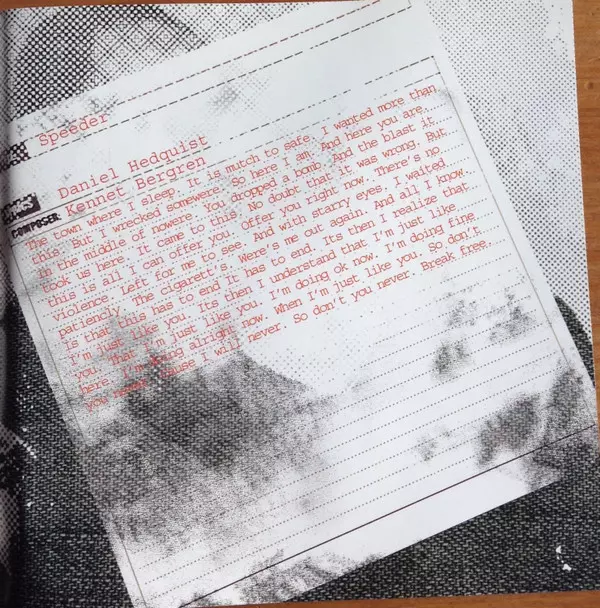 Speeder
Daniel Hedquist
COMPOSER: Kennet Bergren
The town where I sleep. It is mutch to safe. I wanted more than
this. But I wrecked somewere. So here I am. And here you are.
In the middle of nowere. You dropped a bomb. And the blast it
took us here. It came to this. No doubt that it was wrong. But
this is all I can offer you. Offer you right now. There's no
violence. Left for me to see. And with starry eyes. I waited
patiencly. The cigarett's. Were's me out again. And all I know.
is that this has to end it has to end. Its then I realize that
I'm just like you. Its then I understand that I'm just like
you. That I'm just like you. I'm doing ok now. I'm doing fine
here. I'm doing alright now. When I'm just like you. So don't
you never. Cause I will never. So don't you never. Break free.